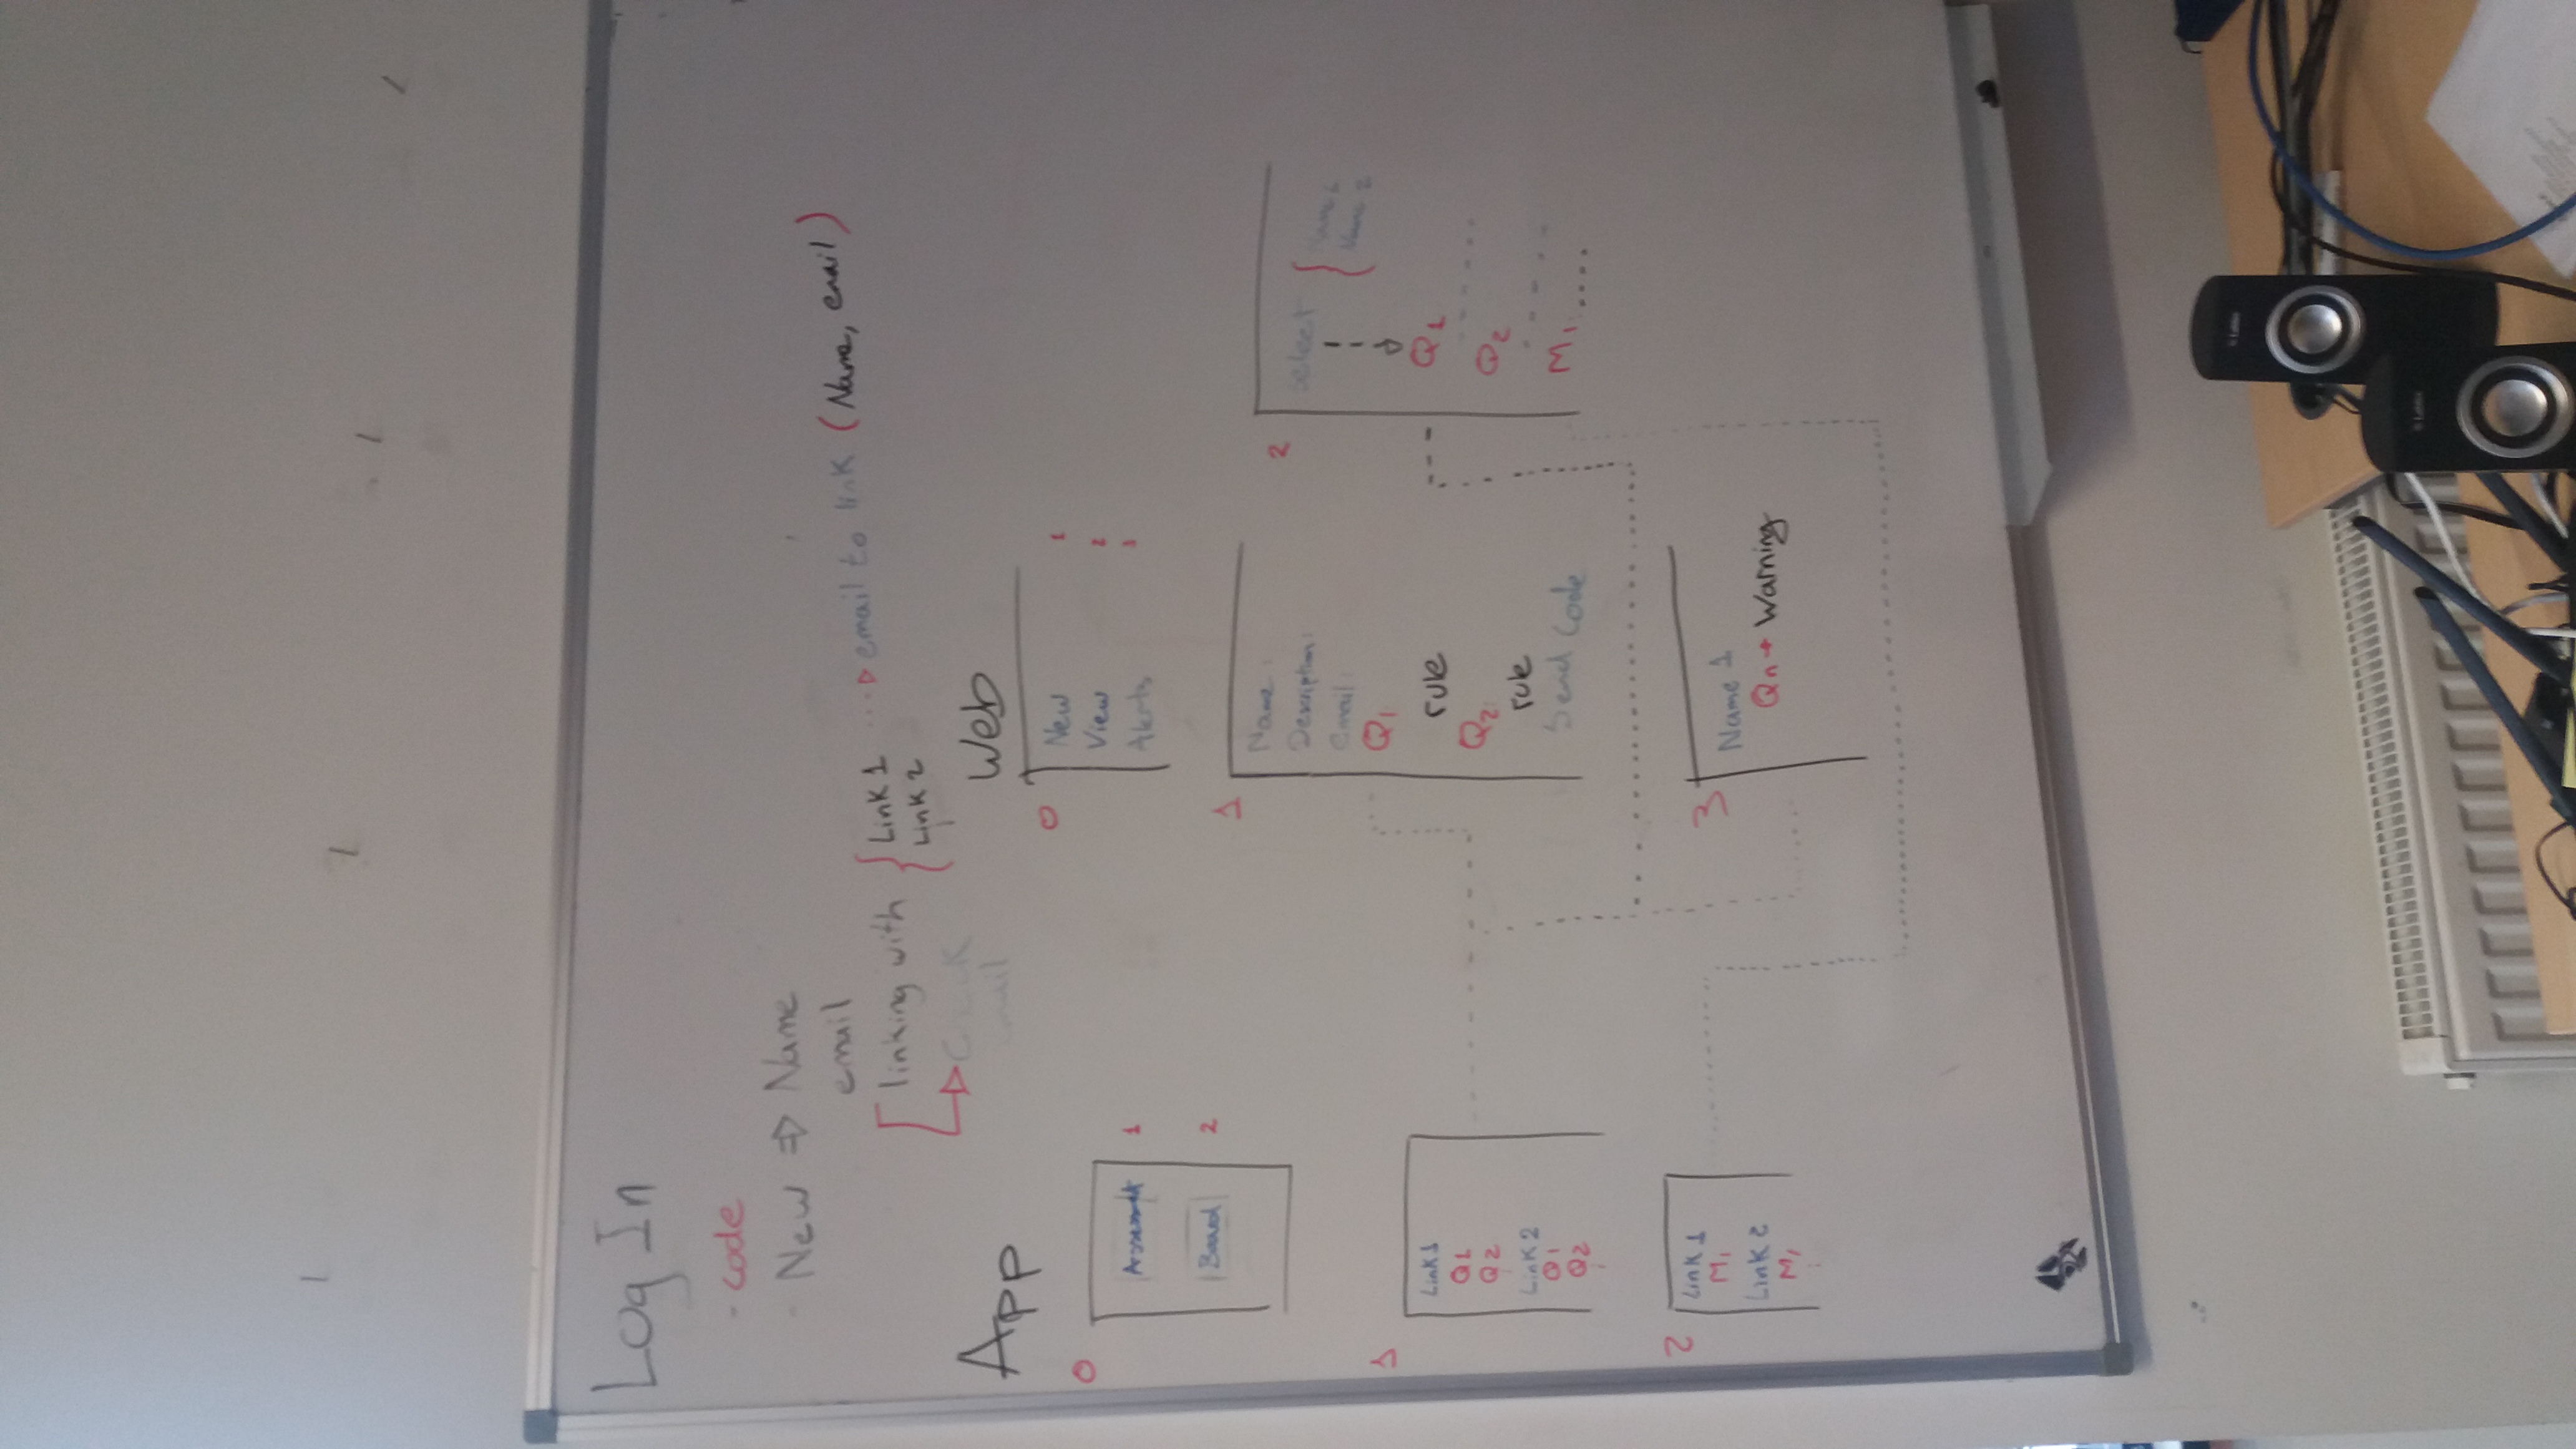 Log In
- code
- New ⇒ Name
email
linking with { Link 1 ···▷ email to link (Name, email)
Link 2
Check
email
App
0
Assessment 1
Board 2
1
Link 1
Q1
Q2
Link 2
Q1
Q2
2
Link 1
M1
Link 2
M1
Web
0
New 1
View 2
Alerts 3
1
Name:
Description:
Email:
Q1
rule
Q2
rule
Send Code
2
Select { Name 1
Name 2
Q1
Q2
M1
3
Name 1
Qn → Warning